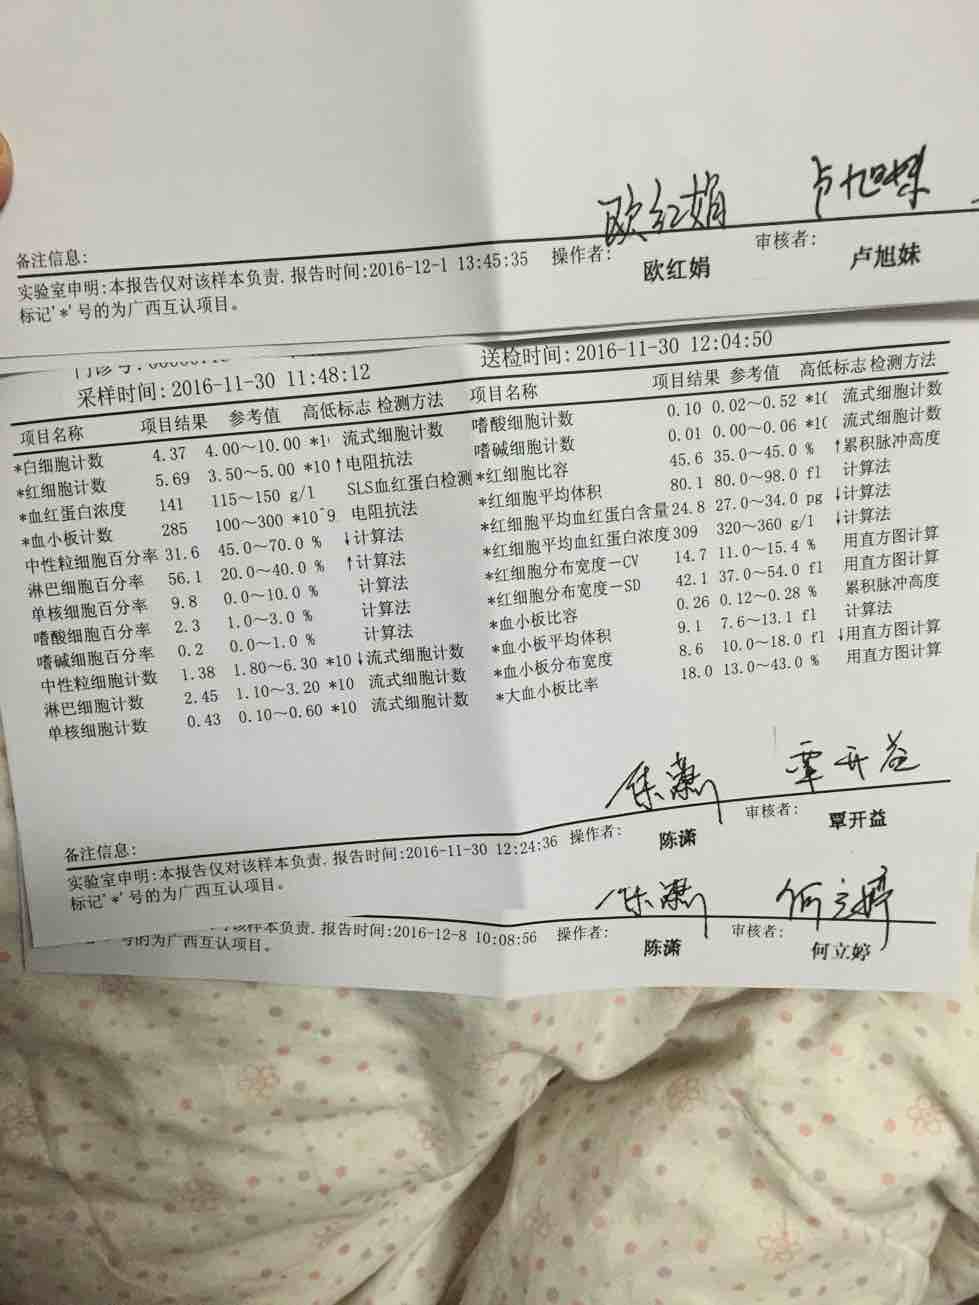 欧红娟 卢旭妹
备注信息:
实验室申明:本报告仅对该样本负责. 报告时间:2016-12-1 13:45:35 操作者: 欧红娟 审核者: 卢旭妹
标记'*'号的为广西互认项目。
采样时间:2016-11-30 11:48:12 送检时间:2016-11-30 12:04:50
项目名称 项目结果 参考值 高低标志 检测方法 项目名称 项目结果 参考值 高低标志 检测方法
*白细胞计数 4.37 4.00~10.00 *1 流式细胞计数 嗜酸细胞计数 0.10 0.02~0.52 *1( 流式细胞计数
*红细胞计数 5.69 3.50~5.00 *10 ↑ 电阻抗法 嗜碱细胞计数 0.01 0.00~0.06 *1( 流式细胞计数
*血红蛋白浓度 141 115~150 g/l SLS血红蛋白检测 *红细胞比容 45.6 35.0~45.0 % ↑ 累积脉冲高度
*血小板计数 285 100~300 *10^9 电阻抗法 *红细胞平均体积 80.1 80.0~98.0 fl 计算法
中性粒细胞百分率 31.6 45.0~70.0 % ↓ 计算法 *红细胞平均血红蛋白含量 24.8 27.0~34.0 pg ↓ 计算法
淋巴细胞百分率 56.1 20.0~40.0 % ↑ 计算法 *红细胞平均血红蛋白浓度 309 320~360 g/l ↓ 计算法
单核细胞百分率 9.8 0.0~10.0 % 计算法 *红细胞分布宽度-CV 14.7 11.0~15.4 % 用直方图计算
嗜酸细胞百分率 2.3 1.0~3.0 % 计算法 *红细胞分布宽度-SD 42.1 37.0~54.0 fl 用直方图计算
嗜碱细胞百分率 0.2 0.0~1.0 % 计算法 *血小板比容 0.26 0.12~0.28 % 累积脉冲高度
中性粒细胞计数 1.38 1.80~6.30 *10 ↓ 流式细胞计数 *血小板平均体积 9.1 7.6~13.1 fl 计算法
淋巴细胞计数 2.45 1.10~3.20 *10 流式细胞计数 *血小板分布宽度 8.6 10.0~18.0 fl ↓ 用直方图计算
单核细胞计数 0.43 0.10~0.60 *10 流式细胞计数 *大血小板比率 18.0 13.0~43.0 % 用直方图计算
陈潇 覃开益
备注信息:
实验室申明:本报告仅对该样本负责. 报告时间:2016-11-30 12:24:36 操作者: 陈潇 审核者: 覃开益
标记'*'号的为广西互认项目。
陈潇 何立婷
本负责. 报告时间:2016-12-8 10:08:56 操作者: 陈潇 审核者: 何立婷
号的为广西互认项目。